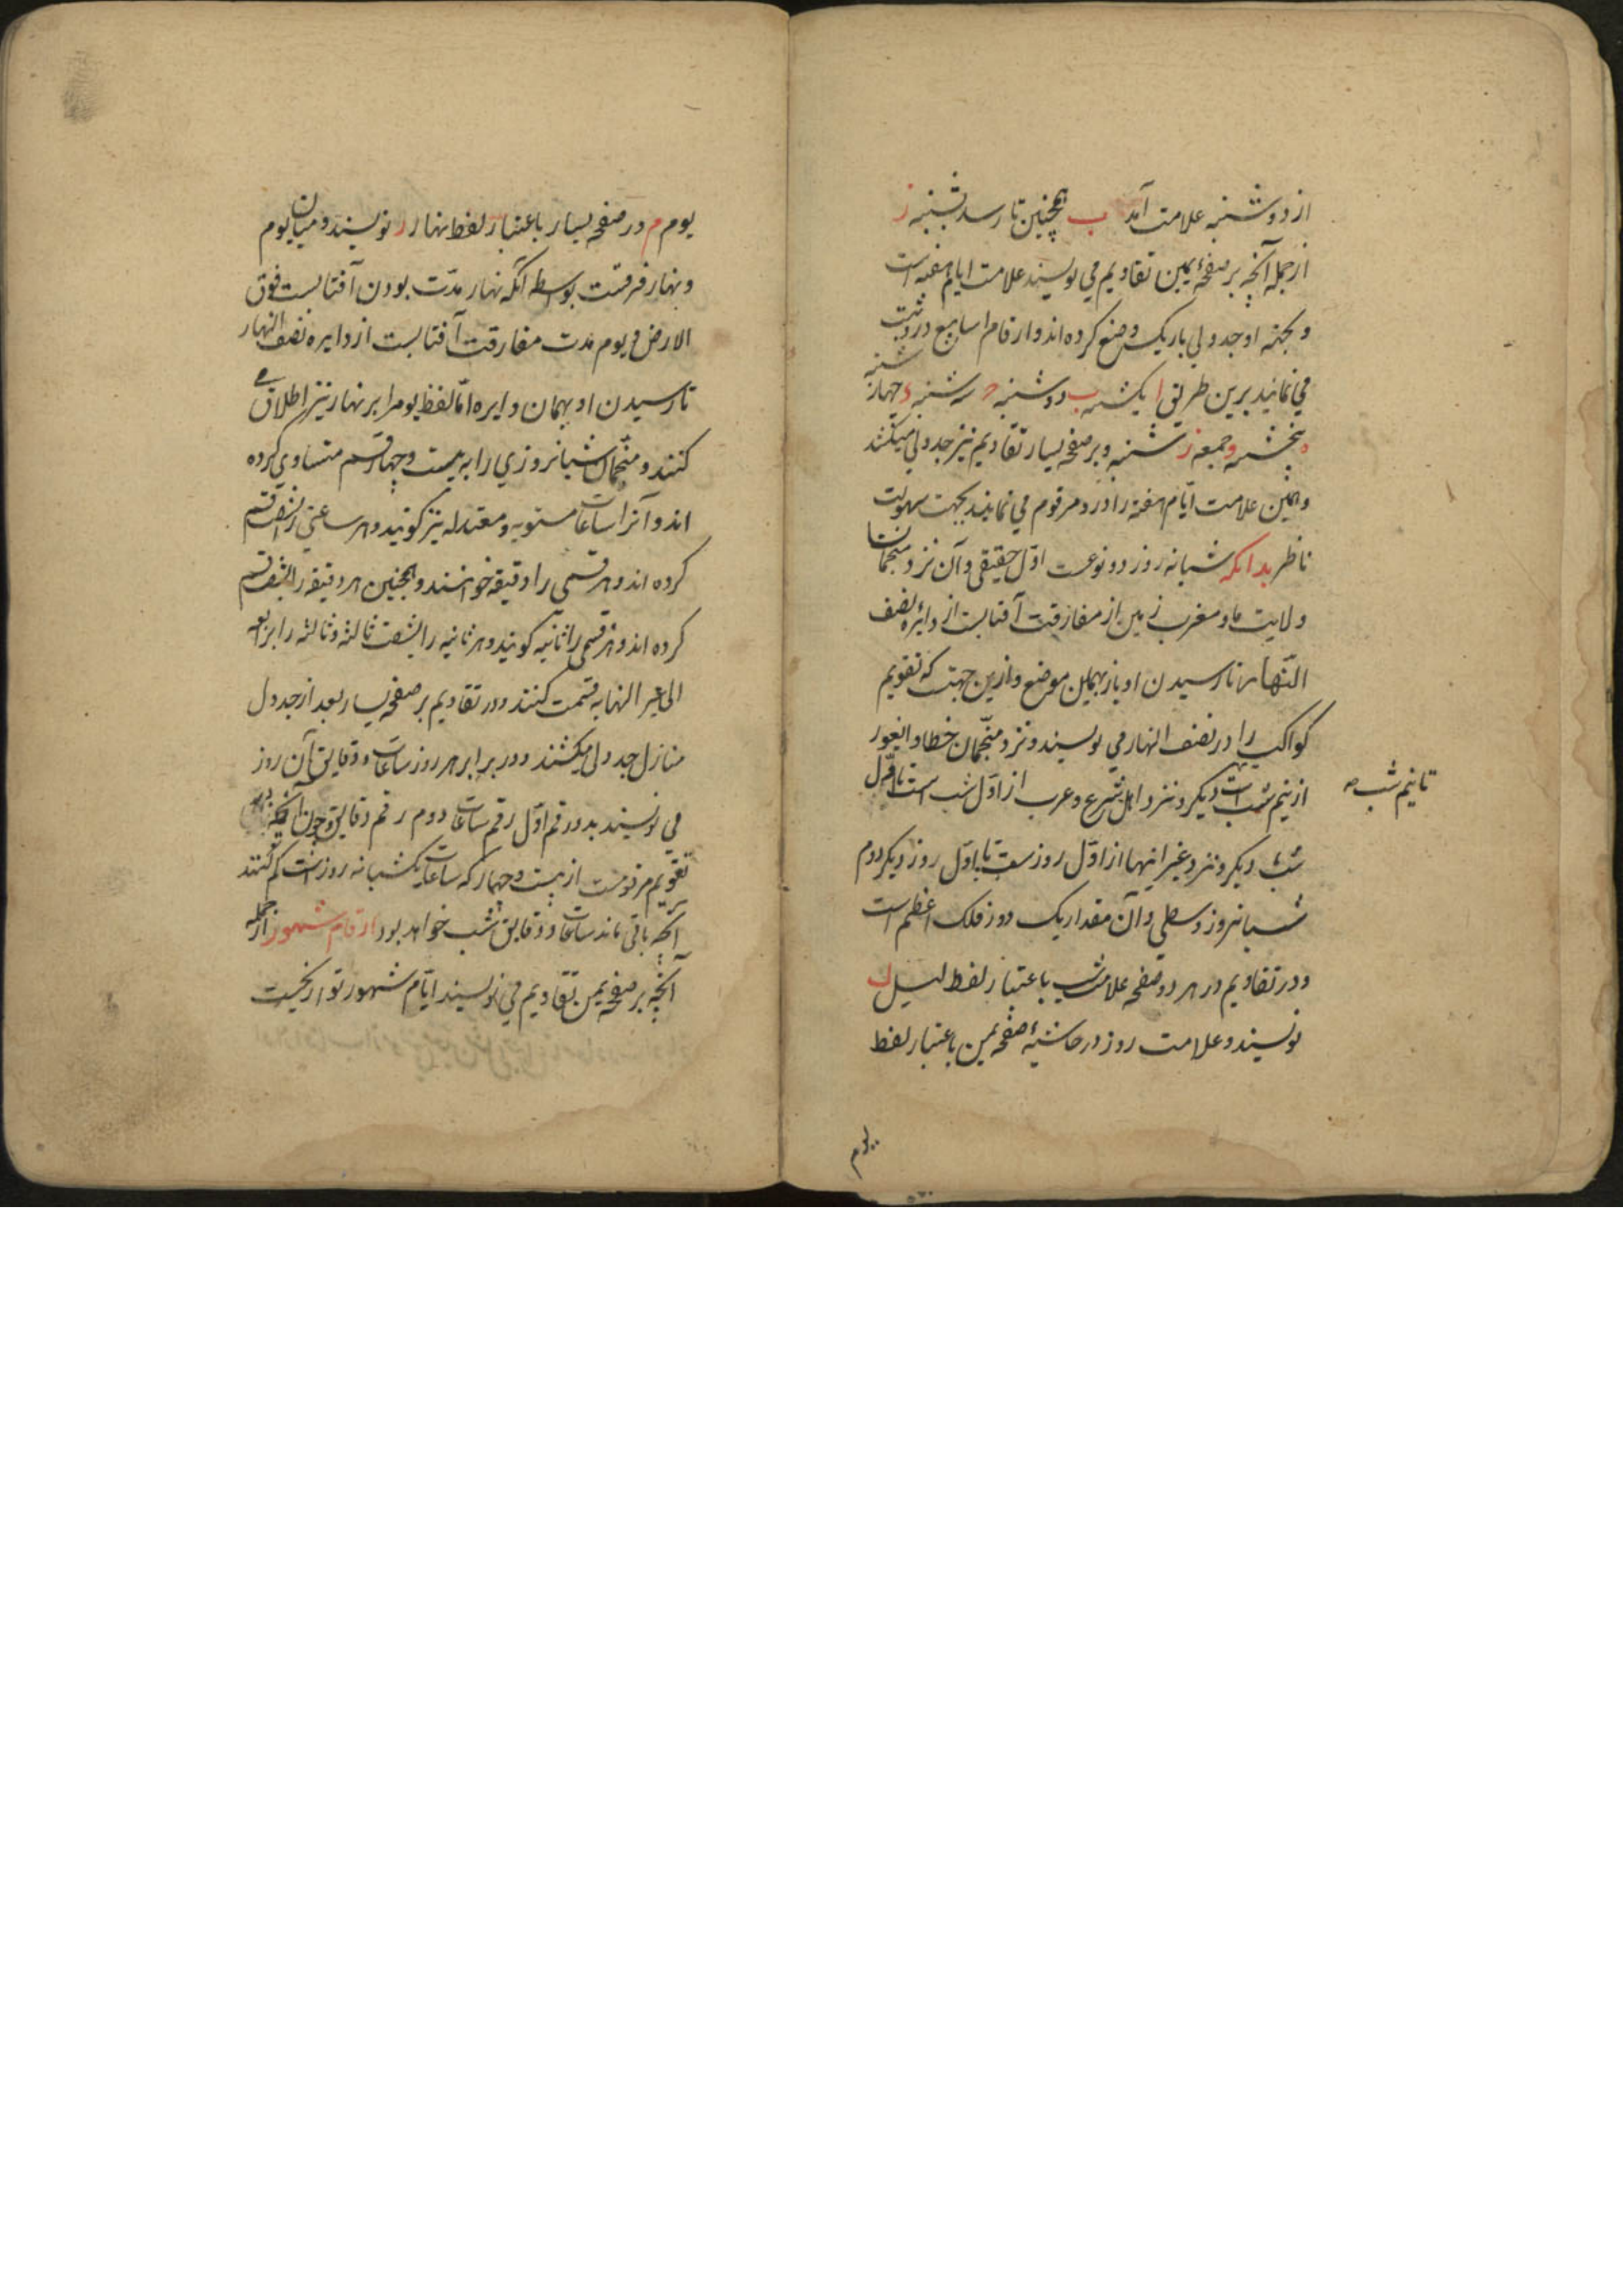 از دوشنبه علامت آمد ب همچنین تا رسد بشنبه ز
از جمله آنچه بر صفحهٔ یمین تقاویم می نویسند علامت ایام هفته است
و بجهة او جدولی باریک وضع کرده اند و ارقام اسابیع درو ثبت
می نمایند برین طریق ا یکشنبه ب دوشنبه ج سه شنبه د چهارشنبه
ه پنجشنبه و جمعه ز شنبه و بر صفحه یسار تقاویم نیز جدولی میکشند
و همین علامت ایّام هفته را درو مرقوم می نمایند بجهت سهولت
ناظر بدانکه شبانه روز دو نوعست اوّل حقیقی و آن نزد منجمان
ولایت ما و مغرب زمین از مفارقت آفتابست از دایرهٔ نصف
النّهار تا رسیدن او باز بهمان موضع و ازین جهت که تقویم
کواکب را در نصف النهار می نویسند و نزد منجّمان خطا و ایغور
از نیم شب است دیگر و نزد اهل شرع و عرب از اوّل شب است تا اوّل
تا نیم شب
شب دیگر و نزد غیر اینها از اوّل روز ست تا اوّل روز دیگر دوم
شبانروز وسطی و آن مقدار یک دور فلک اعظم است
و در تقاویم در هر دو صفحه علامت شب باعتبار لفظ لیل ل
نویسند و علامت روز در حاشیهٔ صفحه یمین باعتبار لفظ
یوم
یوم م و در صفحه یسار باعتبار لفظ نهار ر نویسند و میان یوم
و نهار فرقست بواسطه آنکه نهار مدّت بودن آفتابست فوق
الارض و یوم مدت مفارقت آفتابست از دایره نصف النهار
تا رسیدن او بهمان دایره امّا لفظ یوم را بر نهار نیز اطلاق
کنند و منجّمان شبانروزی را به بیست و چهار قسم متساوی کرده
اند و آنرا ساعات مستویه و معتدله نیز گویند و هر ساعتی را بشصت قسم
کرده اند و هر قسمی را دقیقه خوانند و همچنین هر دقیقه را بشصت قسم
کرده اند و هر قسمی را ثانیه گویند و هر ثانیه را بشصت ثالثه و ثالثه را برابعه
الی غیر النهایه قسمت کنند و در تقاویم بر صفحه یسار بعد از جدول
منازل جدولی میکشند و در برابر هر روز ساعات و دقایق آن روز
می نویسند بدو رقم اوّل رقم ساعات دوم رقم دقایق و چون آنچه در
تقویم مرقومست از بیست و چهار که ساعات یکشبانه روزست کم کنند
آنچه باقی ماند ساعات و دقایق شب خواهد بود ارقام شهور از جمله
آنچه بر صفحه یمین تقاویم می نویسند ایّام شهور تواریخست